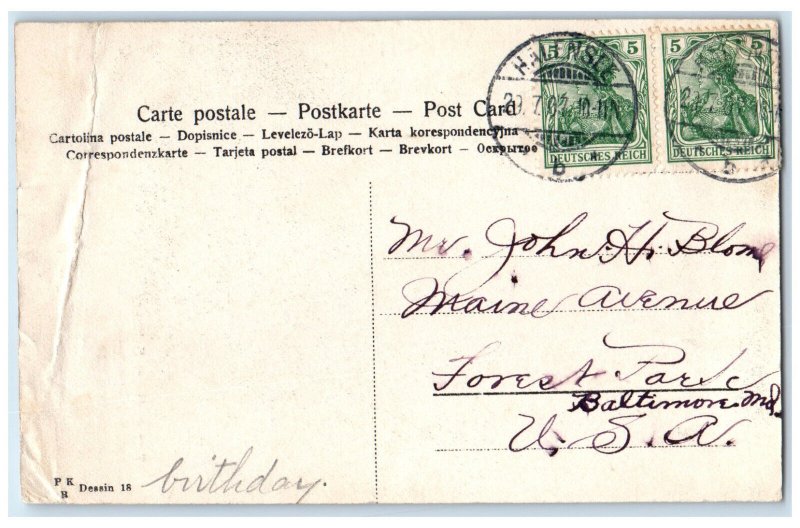 5 5 5
HALENSEE
29.7.07. 10-11
b b
DEUTSCHES REICH DEUTSCHES REICH
Carte postale — Postkarte — Post Card
Cartolina postale — Dopisnice — Levelező-Lap — Karta korespondencyjna
Correspondenzkarte — Tarjeta postal — Brefkort — Brevkort — Открытое
Mr. John H. Blome
Maine Avenue
Forest Park
Baltimore Md.
U. S. A.
P K
R Dessin 18
birthday.